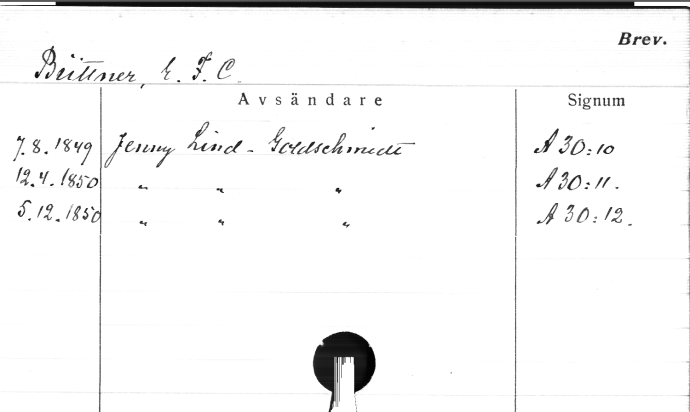 Brev.
Büttner, E. F. C.
Avsändare Signum
7.8.1849 Jenny Lind-Goldschmidt A 30:10
12.4.1850 " " " A 30:11.
5.12.1850 " " " A 30:12.